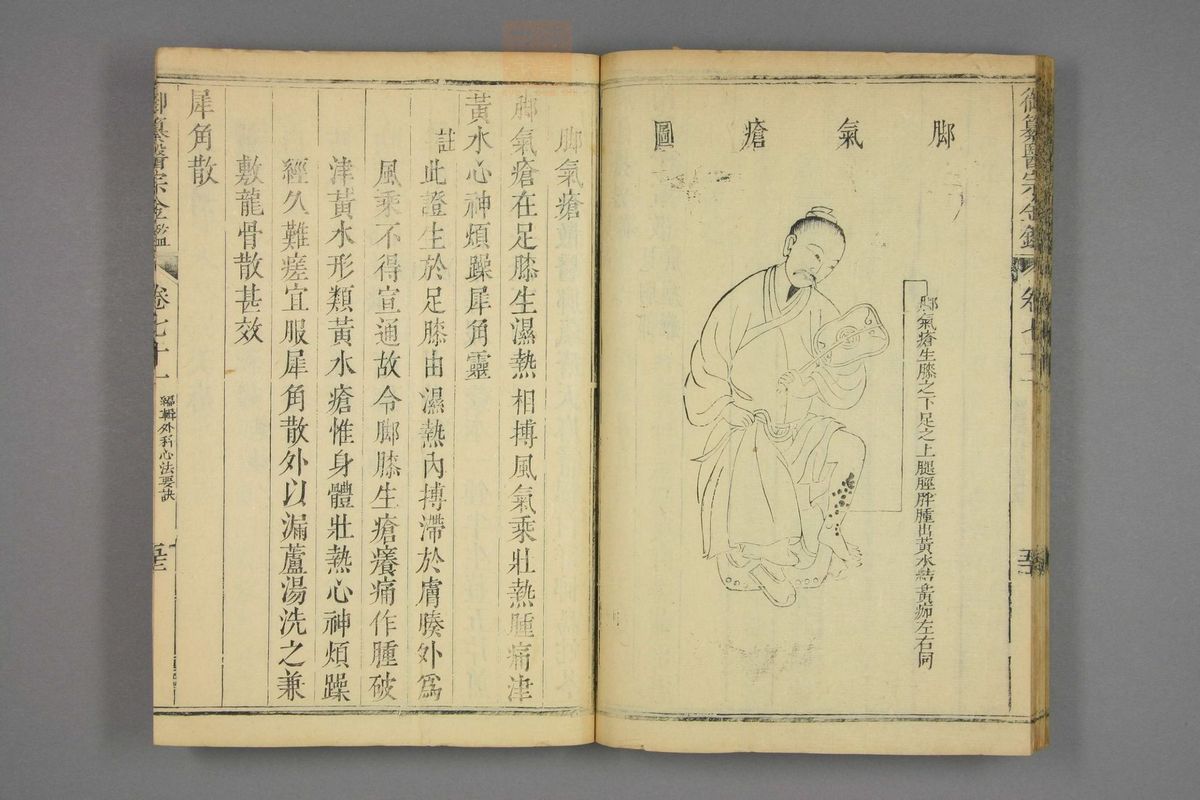 御纂醫宗金鑑 卷七十一
脚氣瘡圖
脚氣瘡生膝之下足之上腿脛胖腫出黃水結黃痂左右同
脚氣瘡
脚氣瘡在足膝生濕熱相搏風氣乘壯熱腫痛津
黃水心神煩躁犀角靈
註此證生於足膝由濕熱內搏滯於膚腠外為
風乘不得宣通故令脚膝生瘡癢痛作腫破
津黃水形類黃水瘡惟身體壯熱心神煩躁
經久難瘥宜服犀角散外以漏蘆湯洗之兼
敷龍骨散甚效
犀角散
御纂醫宗金鑑 卷七十一 編輯外科心法要訣